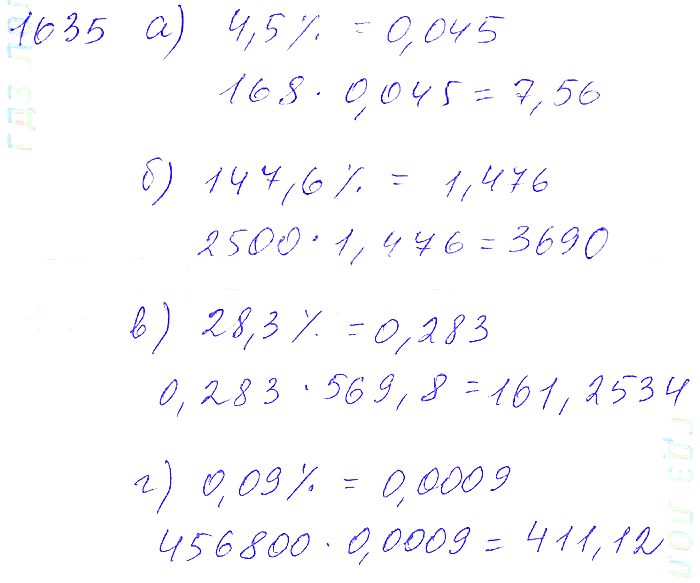 1635 а) 4,5% = 0,045
168 · 0,045 = 7,56
б) 147,6% = 1,476
2500 · 1,476 = 3690
в) 28,3% = 0,283
0,283 · 569,8 = 161,2534
г) 0,09% = 0,0009
456800 · 0,0009 = 411,12